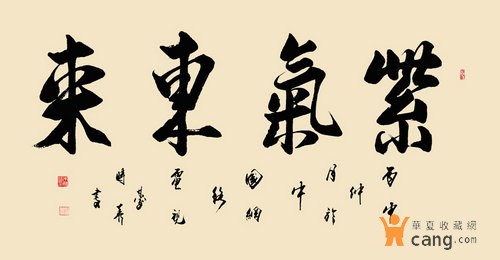 紫氣東來
丙申
仲
月於
中
國網
絡
電視
臺
書
華夏收藏網
cang.com